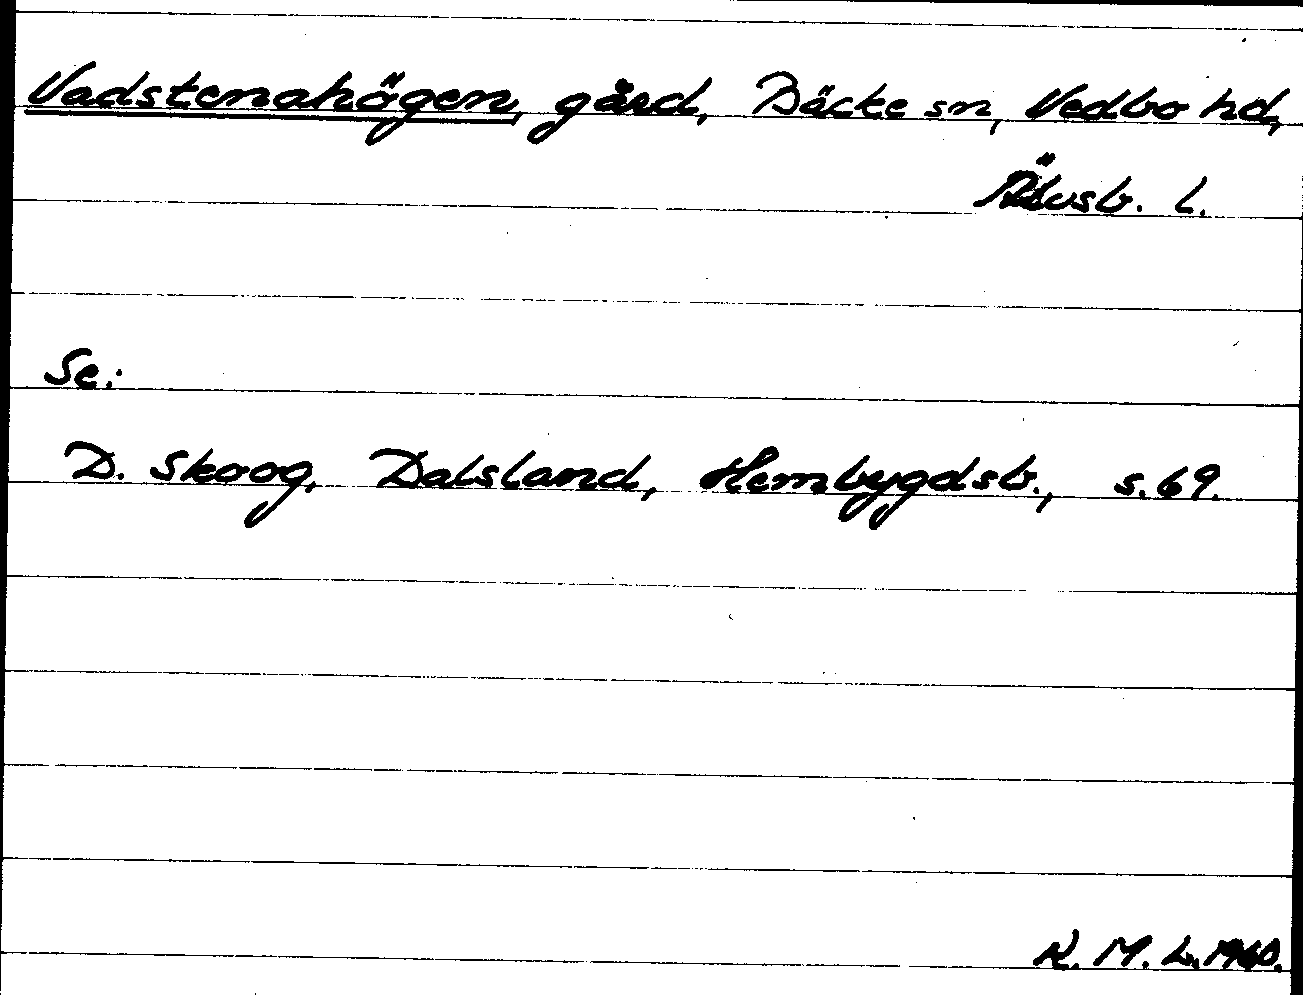 Vadstenahögen, gård, Bäcke sn, Vedbo hd,
Älvsb. l.
Se:
D. Skoog, Dalsland, Hembygdsb., s. 69.
K. M. L. 1960.